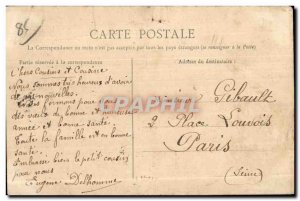 85
CARTE POSTALE
La Correspondance au recto n'est pas acceptée par tous les pays étrangers (se renseigner à la Poste)
Partie réservée à la correspondance
Adresse du destinataire
Chers Cousins et Cousine
Nous sommes très heureux d'avoir
nouvelles
formons pour
des vœux de bonne et heureuse
année et bonne santé
toute la famille est en bonne
santé
bien le petit cousin
pour nous
Eugène Delhomme
Gibault
2 Place Louvois
Paris
(Seine)
CPAPHIL